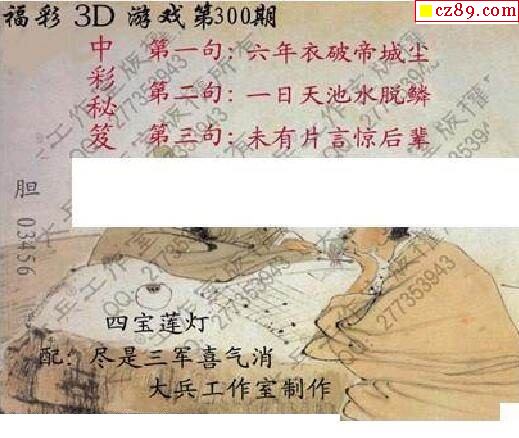 cz89.com
福彩 3D 游戏第300期
中彩秘笈
第一句：六年衣破帝城尘
第二句：一日天池水脱鳞
第三句：未有片言惊后辈
胆 03456
四宝莲灯
配：尽是三军喜气消
大兵工作室制作
大兵工作室版权所有
QQ 277353943